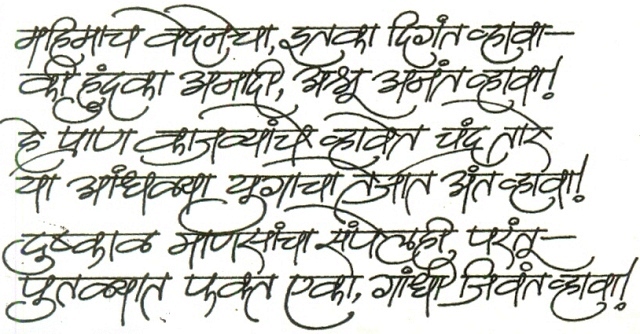 महिमाच वेदनेचा, इतका दिगंत व्हावा—
की हुंदका अनादी, अश्रू अनंत व्हावा!
हे प्राण काजव्यांचे व्हावेत चंद्र तारे
या आंधळ्या युगाचा तेजात अंत व्हावा!
दुष्काळ माणसांचा संपेलही, परंतू—
पुतळ्यात फक्त एको, गांधी जिवंत व्हावा!